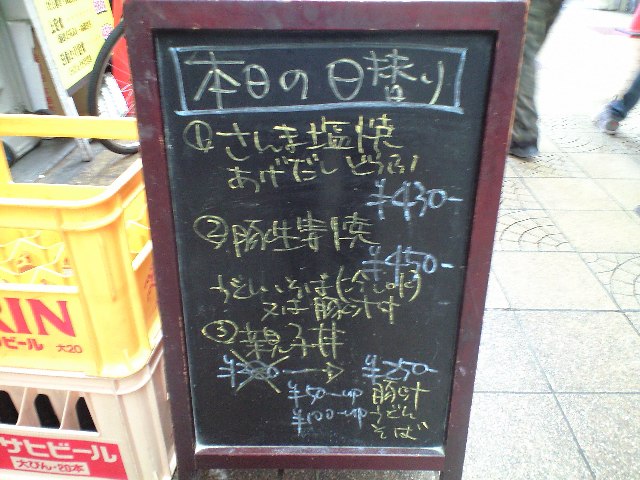 本日の日替り
① さんま塩焼
あげだしどうふ
¥430-
② 豚生姜焼
¥450-
うどんいそば(冷し可)
又は豚汁付
③ 親子丼
¥300 → ¥250-
¥50-up 豚汁
¥100-up うどん
そば
RIN
ビール 大20
アサヒビール
大びん・20本